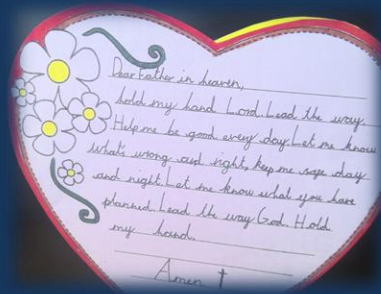 Dear Father in heaven,
hold my hand Lord. Lead the way.
Help me be good every day. Let me know
what's wrong and right, keep me safe day
and night. Let me know what you have
planned. Lead the way God. Hold
my hand.
Amen